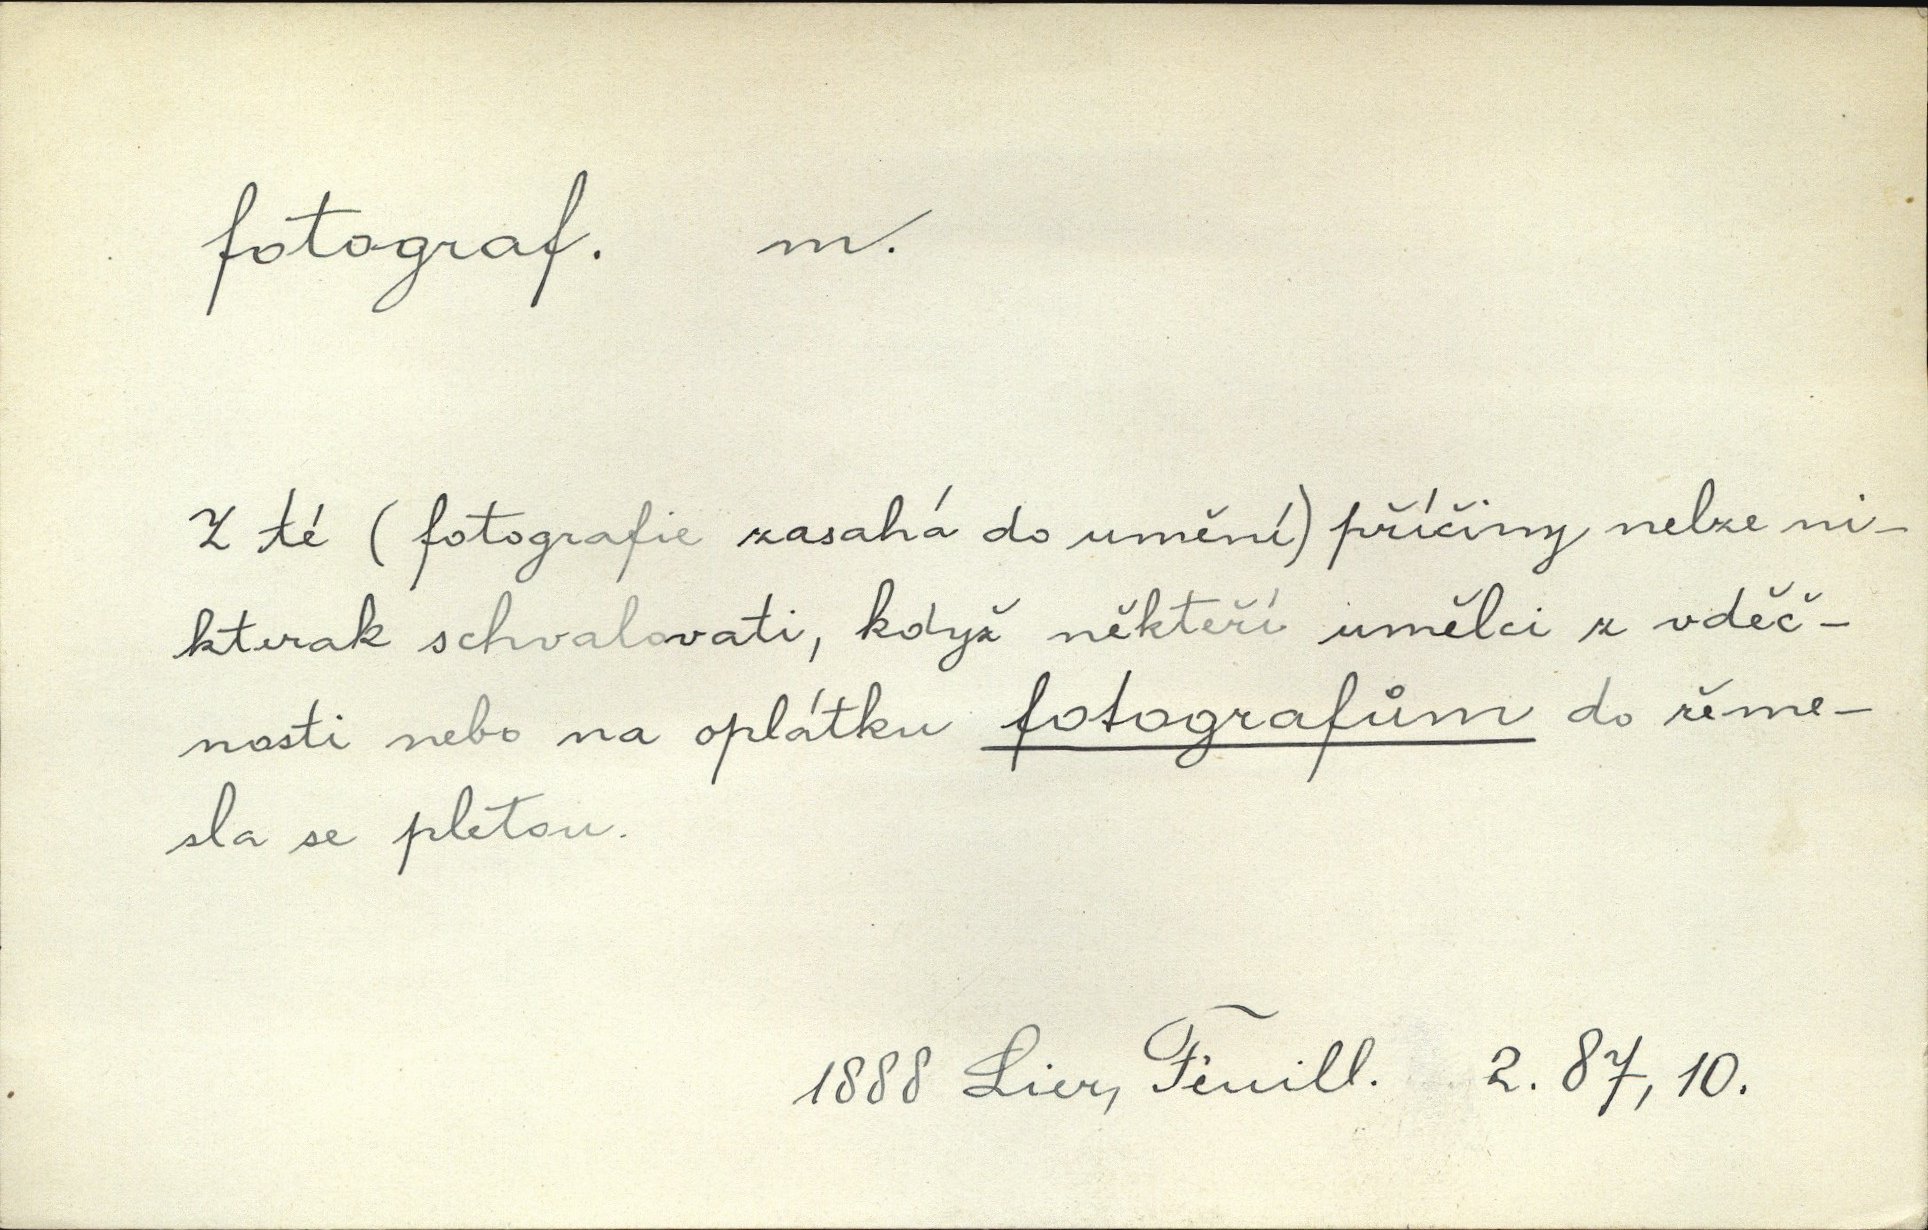 fotograf. m.
Z té (fotografie zasahá do umění) příčiny nelze ni-
kterak schvalovati, když někteří umělci z vděč-
nosti nebo na oplátku fotografům do řeme-
sla se pletou.
1888 Lier, Feuill. 2. 87, 10.